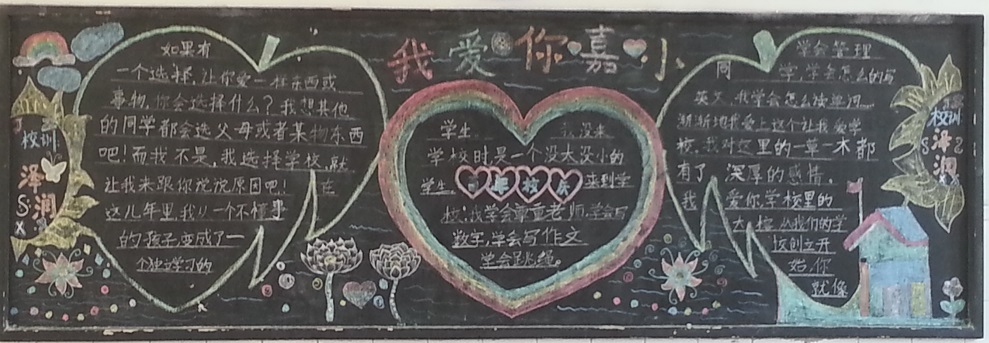 我爱你嘉小
如果有
一个选择,让你爱一样东西或
事物,你会选择什么?我想其他
的同学都会选父母或者某物东西
吧!而我不是,我选择学校,就
让我来跟你说说原因吧! 在
这几年里,我从一个不懂事
的孩子,变成了一
个独立学习的
学生 我没来
学校时是一个没大没小的
学生, 来到学
校,我学会尊重老师,学会写
数字,学会写作文
学会
学会管理
同 学,学会怎么的写
英文,我学会怎么读单词
渐渐地我爱上这个让我爱学
校,我对这里的一草一木都
有了 深厚的感情,
我 爱你,学校里的
从我们的学
校创立开
始,你
就像
校训
泽
润
校训
泽
润